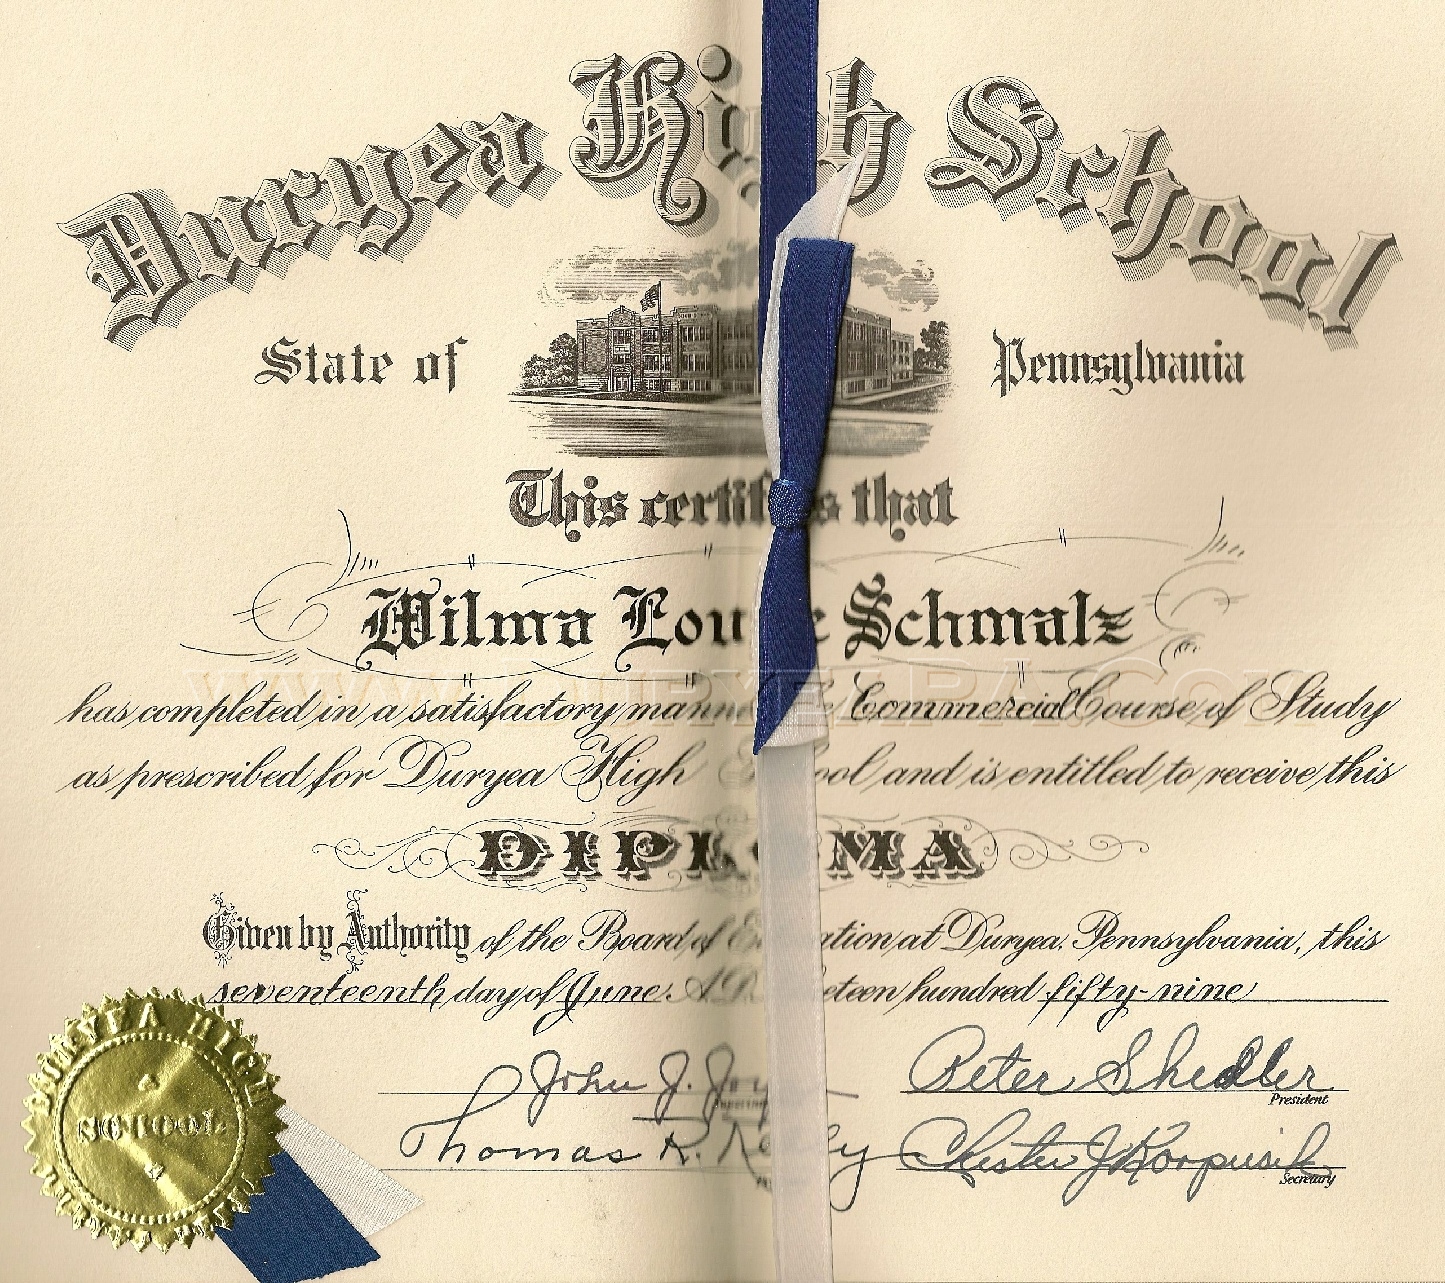 Duryea High School
State of Pennsylvania
This certifies that
Wilma Louise Schmalz
www.DuryeaPA.Com
has completed in a satisfactory manner the Commercial Course of Study
as prescribed for Duryea High School and is entitled to receive this
DIPLOMA
Given by Authority of the Board of Education at Duryea, Pennsylvania, this
seventeenth day of June A.D. nineteen hundred fifty-nine
John J. Peter Shedller
President
Thomas R. Chester J Korpusik
Secretary
DURYEA HIGH
SCHOOL